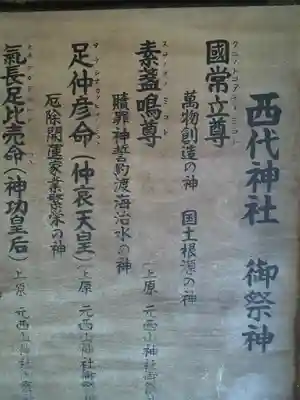 西代神社 御祭神
國常立尊
クニトコタチノミコト
萬物創造の神 国土根源の神
素盞鳴尊
スサノオノミコト
贖罪神誓約渡海治水の神
(上原 元西山神社御祭
足仲彦命(仲哀天皇)
厄除開運家業繁栄の神
(上原 元西山神社御祭
氣長足比売命(神功皇后)
上原 元西山神社御祭